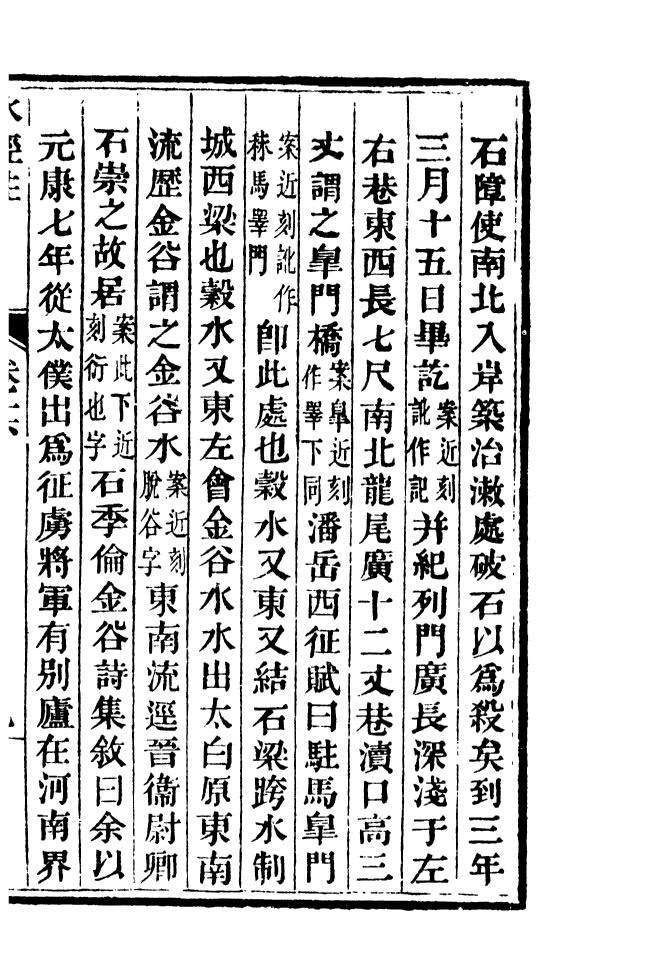 石障使南北入岸築治漱處破石以爲殺矣到三年
三月十五日畢訖案近刻訛作記并紀列門廣長深淺于左
右巷東西長七尺南北龍尾廣十二丈巷瀆口高三
丈謂之臯門橋案臯近刻作睪下同潘岳西征賦曰駐馬臯門
案近刻訛作秣馬睪門卽此處也穀水又東又結石梁跨水制
城西梁也穀水又東左會金谷水水出太白原東南
流歷金谷謂之金谷水案近刻脫谷字東南流逕晉衞尉卿
石崇之故居案此下近刻衍也字石季倫金谷詩集敘曰余以
元康七年從太僕出爲征虜將軍有別廬在河南界
水經注 卷十六